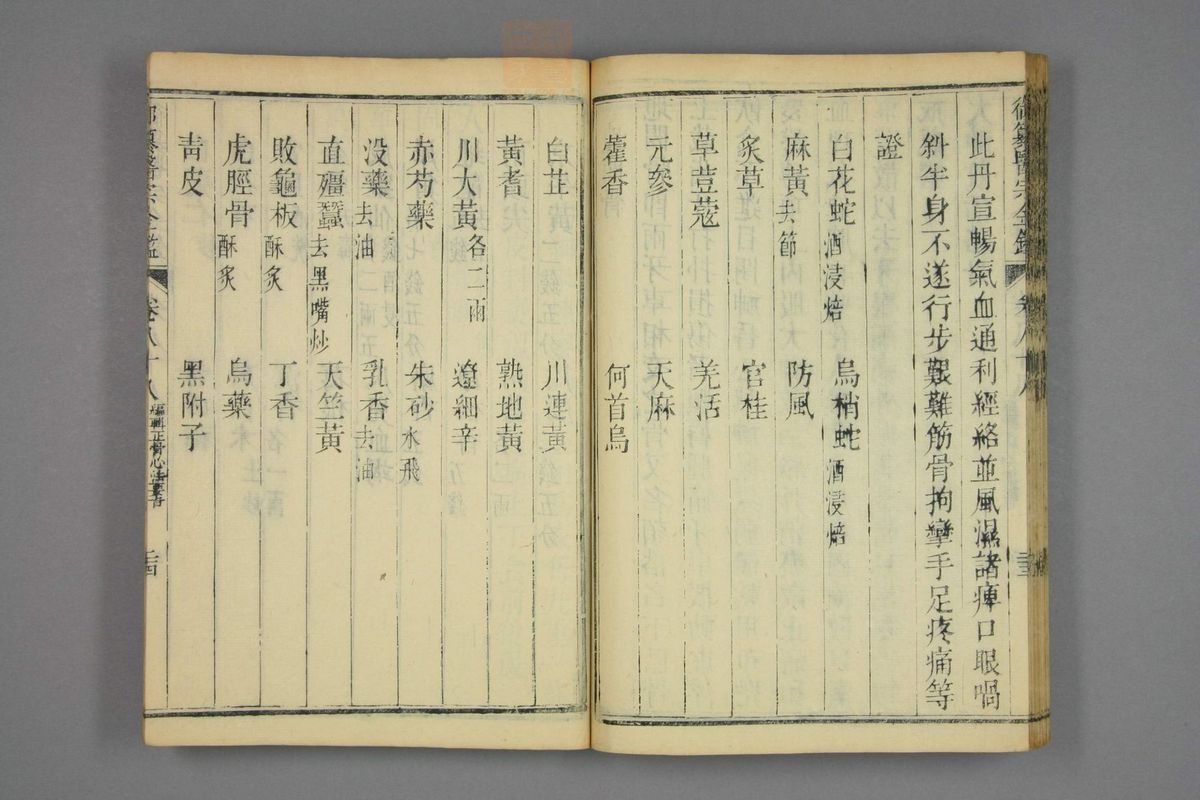 御纂醫宗金鑑 卷八十八 三三
此丹宣暢氣血通利經絡並風濕諸痺口眼喎
斜半身不遂行步艱難筋骨拘攣手足疼痛等
證
白花蛇酒浸焙 烏梢蛇酒浸焙
麻黃去節 防風
炙草 官桂
草荳蔻 羌活
元參 天麻
藿香 何首烏
白芷 川連
黃耆 熟地黃
川大黃各二兩 遼細辛
赤芍藥 朱砂水飛
沒藥去油 乳香去油
直殭蠶去黑嘴炒 天竺黃
敗龜板酥炙 丁香
虎脛骨酥炙 烏藥
青皮 黑附子
御纂醫宗金鑑 卷八十八 編輯正骨心法要旨 三四